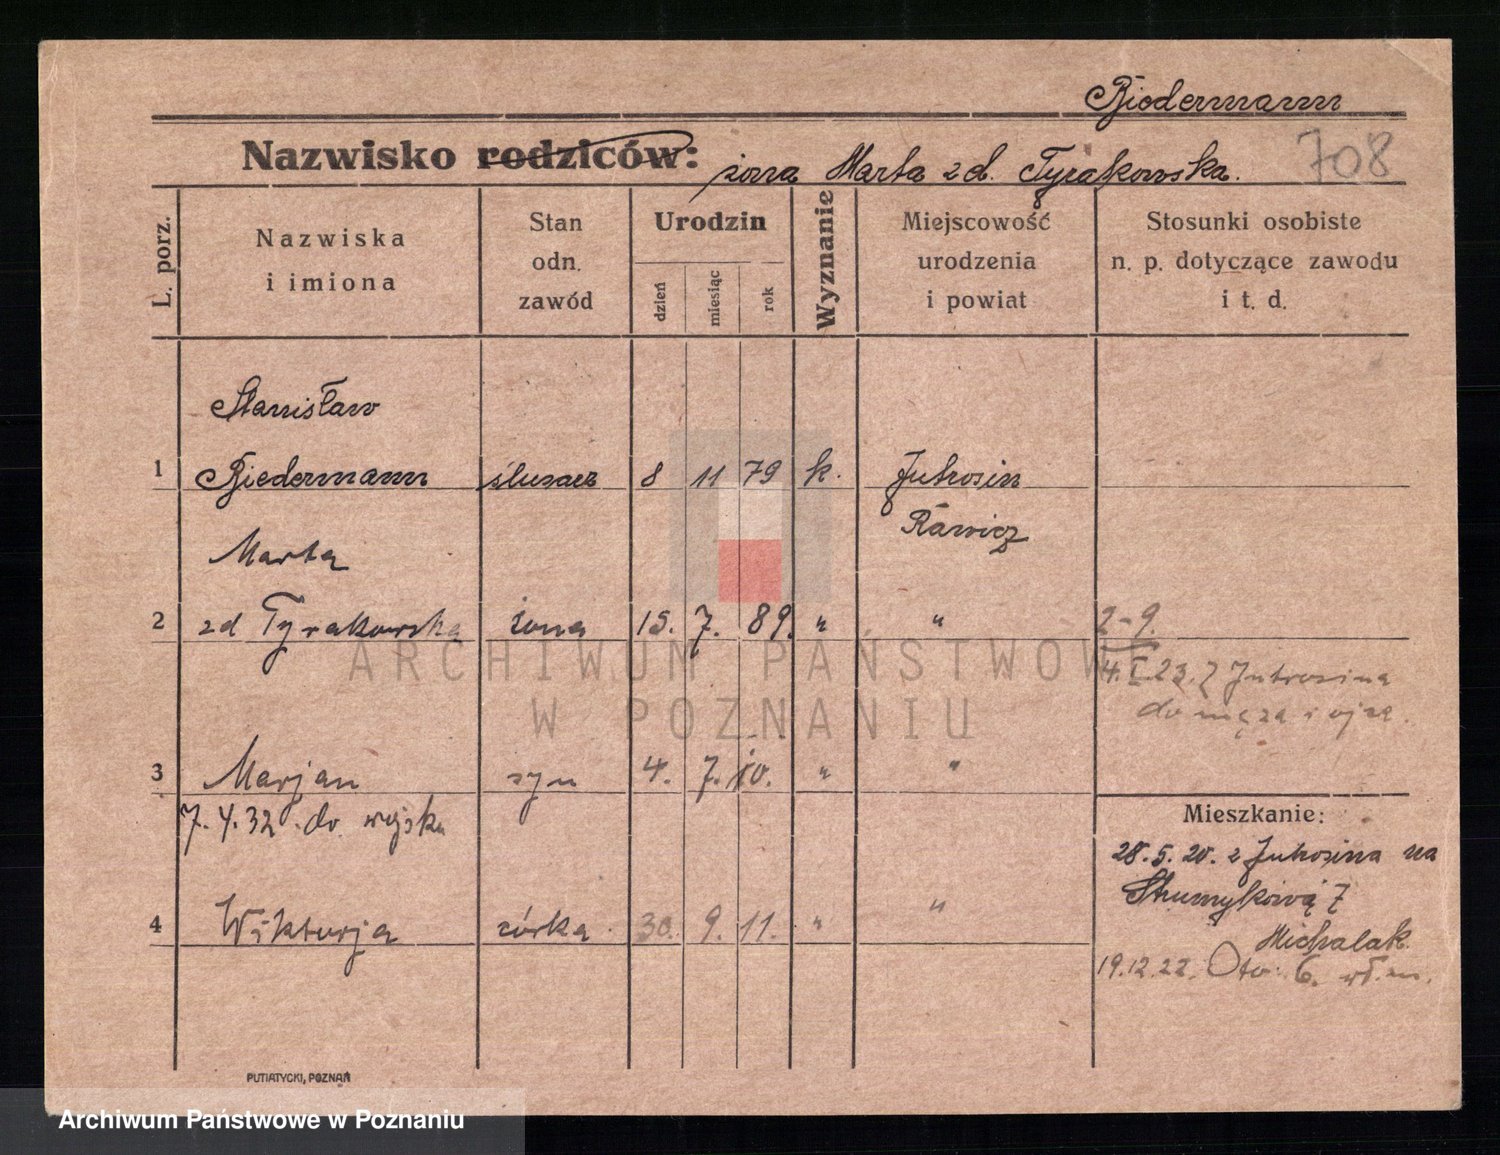 Biedermann
Nazwisko rodziców: żona Marta zd. Tyrakowska. 708
L. porz.
Nazwiska i imiona
Stan odn. zawód
Urodzin
dzień miesiąc rok
Wyznanie
Miejscowość urodzenia i powiat
Stosunki osobiste n. p. dotyczące zawodu i t. d.
Stanisław
1 Biedermann ślusarz 8 11 79 k. Jutrosin
Rawicz
Marta
2 zd Tyrakowska żona 15. 7. 89. " " 2-9.
4.I.23. z Jutrosina
do męża i ojca.
3 Marjan syn 4. 7. 10. " "
7.4.32. do wojska
Mieszkanie:
28.5.20. z Jutrosina na
Strumykową 7
4 Wiktorja córka 30. 9. 11. " "
Michalak.
19.12.22. 6. wł.m.
PUTIATYCKI, POZNAŃ
ARCHIWUM PAŃSTWOWE
W POZNANIU
Archiwum Państwowe w Poznaniu